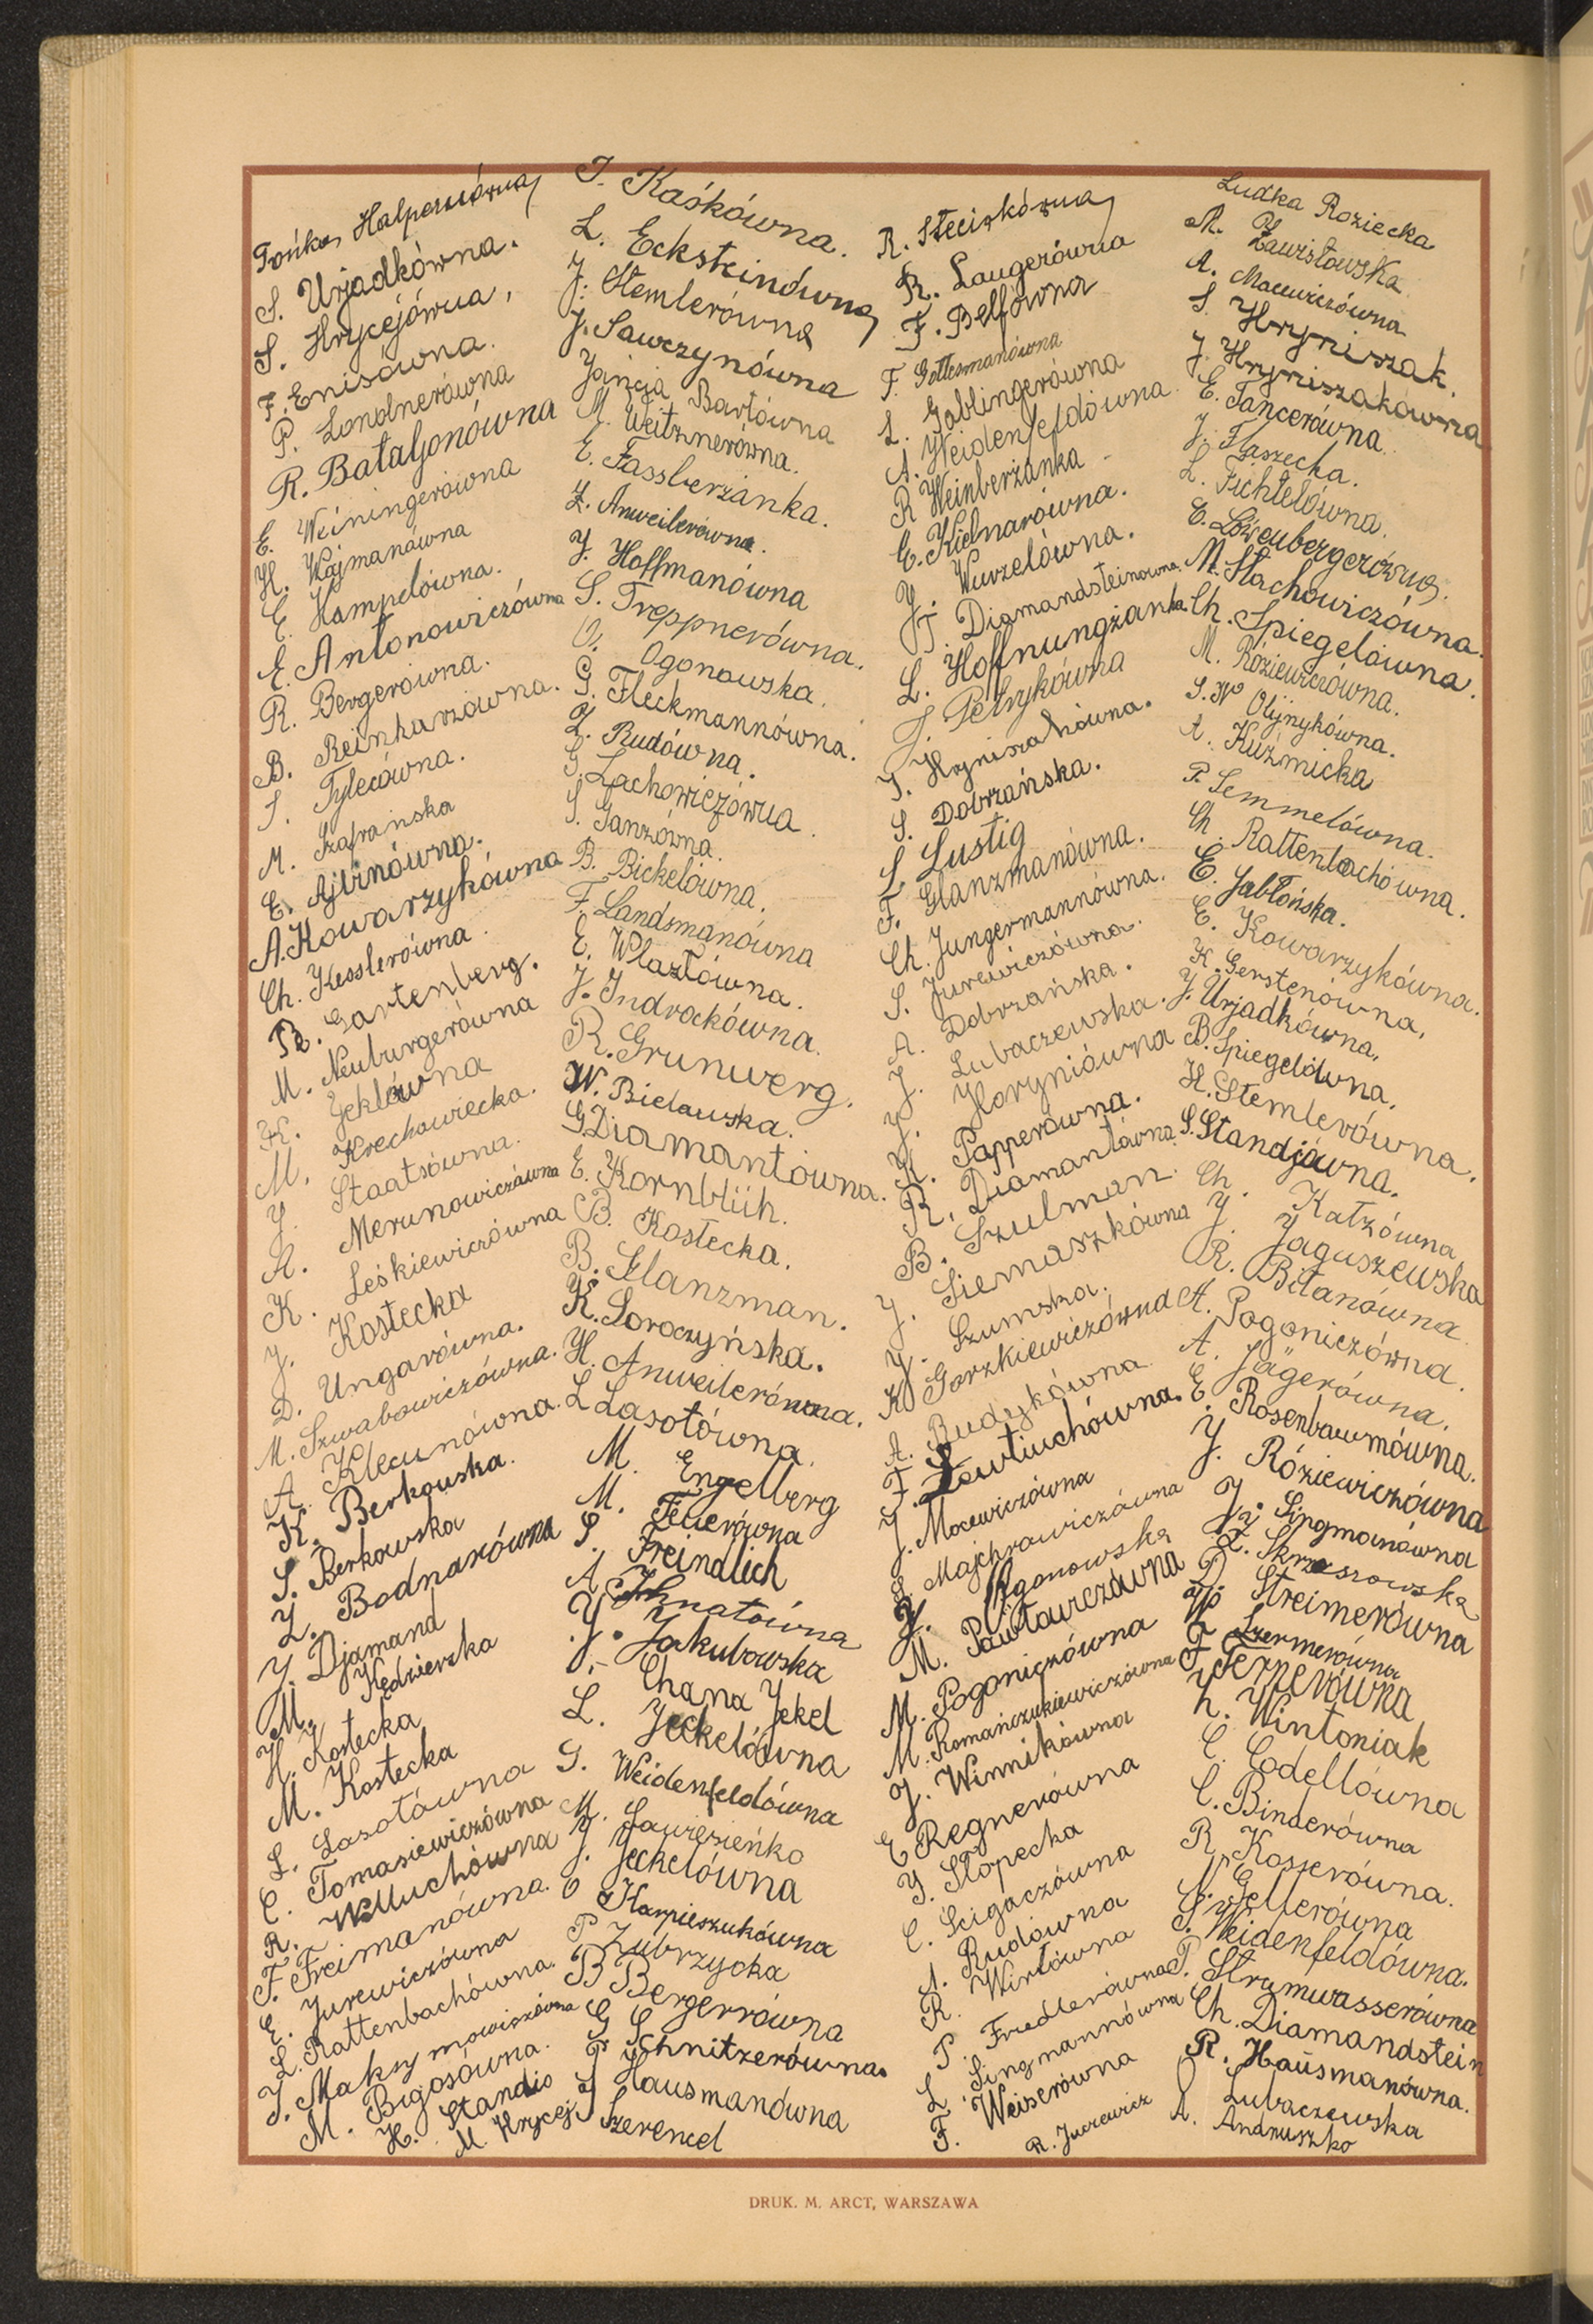 Tońka Halpernówna
S. Urjadkówna.
S. Hrycejówna,
F. Enisówna.
P. Londnerówna
R. Bataljonówna
E. Weiningerówna
H. Wajmanówna
E. Hampelówna.
E. Antonowiczówna
R. Bergerówna.
B. Reinharzówna.
S. Tylecówna.
M. Szafrańska
E. Ajlinówna.
A. Kowarzykówna
Ch. Kesslerówna.
R. Gartenberg.
M. Neuburgerówna
K. Jeklówna
M. Krechowiecka.
J. Staatsówna.
A. Merunowiczówna
K. Leśkiewiczówna
J. Kostecka
D. Ungarówna.
M. Szwabowiczówna.
A. Klecunówna.
K. Berkowska.
S. Berkowska
Z. Bodnarówna
J. Djamand
M. Kędzierska
H. Kostecka
M. Kostecka
S. Lasotówna
C. Tomasiewiczówna
R. Wołłuchówna
F. Freimanówna.
E. Jurewiczówna
L. Rattenbachówna.
J. Maksymowiczówna
M. Bigosówna.
H. Standio
M. Hrycej
J. Kaśkówna.
L. Ecksteinówna
J. Stemlerówna
J. Sawczynówna
Jancia Bartówna
M. Weitznerówna.
E. Fassberżanka.
Z. Anweilerówna.
J. Hoffmanówna
S. Treppnerówna.
O. Ogonowska.
G. Fleckmannówna.
Z. Rudówna.
G. Lachowiczówna.
S. Ganzówna.
B. Bickelówna.
F. Landsmanówna
E. Wlazłówna.
J. Indrockówna.
R. Grunwerg.
W. Bielawska.
G. Diamantówna.
E. Kornblüh.
B. Kostecka.
B. Glanzman.
K. Soroczyńska.
H. Anweilerówna.
L Lasotówna
M. Engelberg
M. Feuerówna
S. Freindlich
A Ihnatówna
J. Jakubowska
J. Chana Jekel
L. Jeckelówna
G. Weidenfeldówna
M. Ławresieńko
J. Jeckelówna
O Karpieszukówna
P Zubrzycka
B Bergerrówna
G Schnitzerówna.
P Hausmanówna
J Szerencel
R. Steciskówna
R. Laugerówna
F. Belfówna
F. Gottesmanówna
L. Gablingerówna
A. Weidenfeldówna.
R Weinberżanka
E. Kielnarówna.
J. Wurzelówna.
J. Diamandsteinówna.
L. Hoffnungżanka.
J. Petrykówna
J. Hryniszakówna.
S. Dobrzańska.
S. Lustig
F. Glanzmanówna.
Ch. Jungermannówna.
S. Jurewiczówna.
A. Dobrzańska.
J. Lubaczewska.
J. Horyniówna
K. Papperówna.
R. Diamantówna.
B. Szulman.
J. Siemaszkówna
J. Szumska.
K Gorzkiewiczówna
A. Rudzykówna
F. Zawtiuchówna.
J. Macewiczówna
S. Majchrowiczówna
J. Ogonowska
M. Pawławczówna
M. Pogoniczówna
M. Romańczukiewiczówna
J. Winnikówna
E Regnerówna
J. Słopecka
C. Ścigaczówna
A. Rudówna
R. Wirłówna
P Friedlerówna
L Singmannówna
F. Weiserówna
R. Jurewicz
Ludka Roziecka
M. Zawisłowska
A. Macewiczówna
S. Hryniszak.
J. Hryniszakówna
E. Tancerówna.
J. Flaszecka.
L. Fichtelówna.
E. Löwenbergerówna.
M. Stachowiczówna.
Ch. Spiegelówna.
M. Róziewiczówna.
S. W Olijnykówna.
A. Kuźmicka
P. Semmelówna.
Ch. Rattenbachówna.
E. Jabłońska.
E. Kowarzykówna.
K. Gerstenówna,
J. Urjadkówna,
B. Spiegelówna.
H. Stemlerówna.
S. Standjówna.
Ch. Katzówna
J Jaguszewska
R. Bitanówna.
A. Pogoniczówna.
A. Jägerówna.
E. Rosenbaumówna.
J. Róziewiczówna
J. Singmanówna
Z. Skrzeszowska
D. Streimerówna
Szermerówna
F Fernerówna
H. Wintoniak
C. Codellówna
C. Binderówna
R. Kosserówna.
N. Gellerówna
S. Weidenfeldówna.
P. Strumwasserówna
Ch. Diamandstein
R. Hausmanówna.
O Lubaczewska
A. Andruszko
DRUK. M. ARCT, WARSZAWA